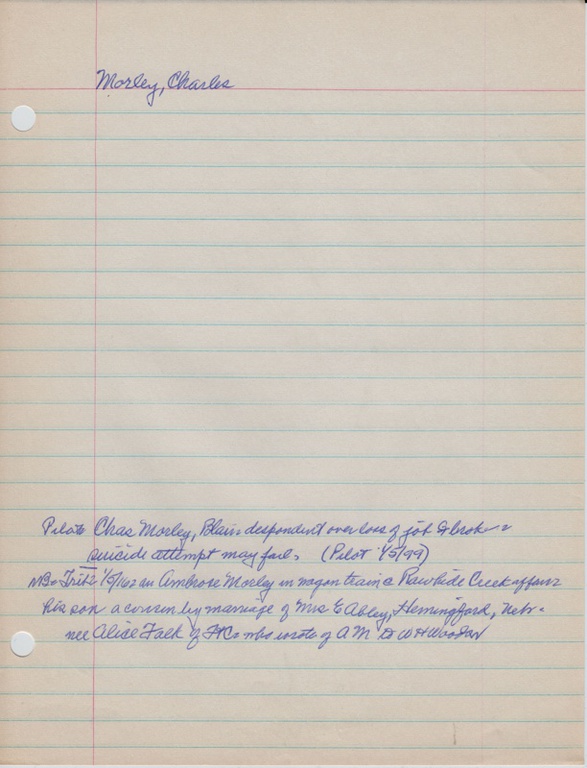 Morley, Charles
Pilot Chas Morley, Blair despondent over loss of job & broke =
suicide attempt may fail. (Pilot 1/5/99)
NB: Fritz 1/5/162 an Ambrose Morley in wagon train & Rawhide Creek affair
his son a cousin by marriage of Mrs E Abley, Hemingford, Nebr.
nee Alice Falk of who wrote of A M &